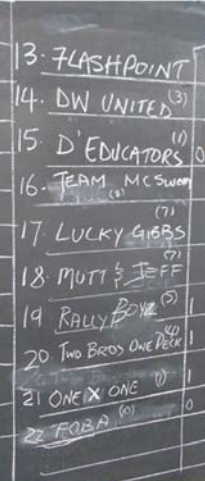 13. FLASHPOINT
14. DW UNITED (3)
15. D'EDUCATORS (1) 0
16. TEAM MCSWEEN
17. LUCKY GIBBS (7)
18. MUTT & JEFF (7)
19 RALLY BOYZ (5) 1
20. TWO BROS ONE DECK (4) 1
21 ONE X ONE (1) 1
22 FOBA (0) 0